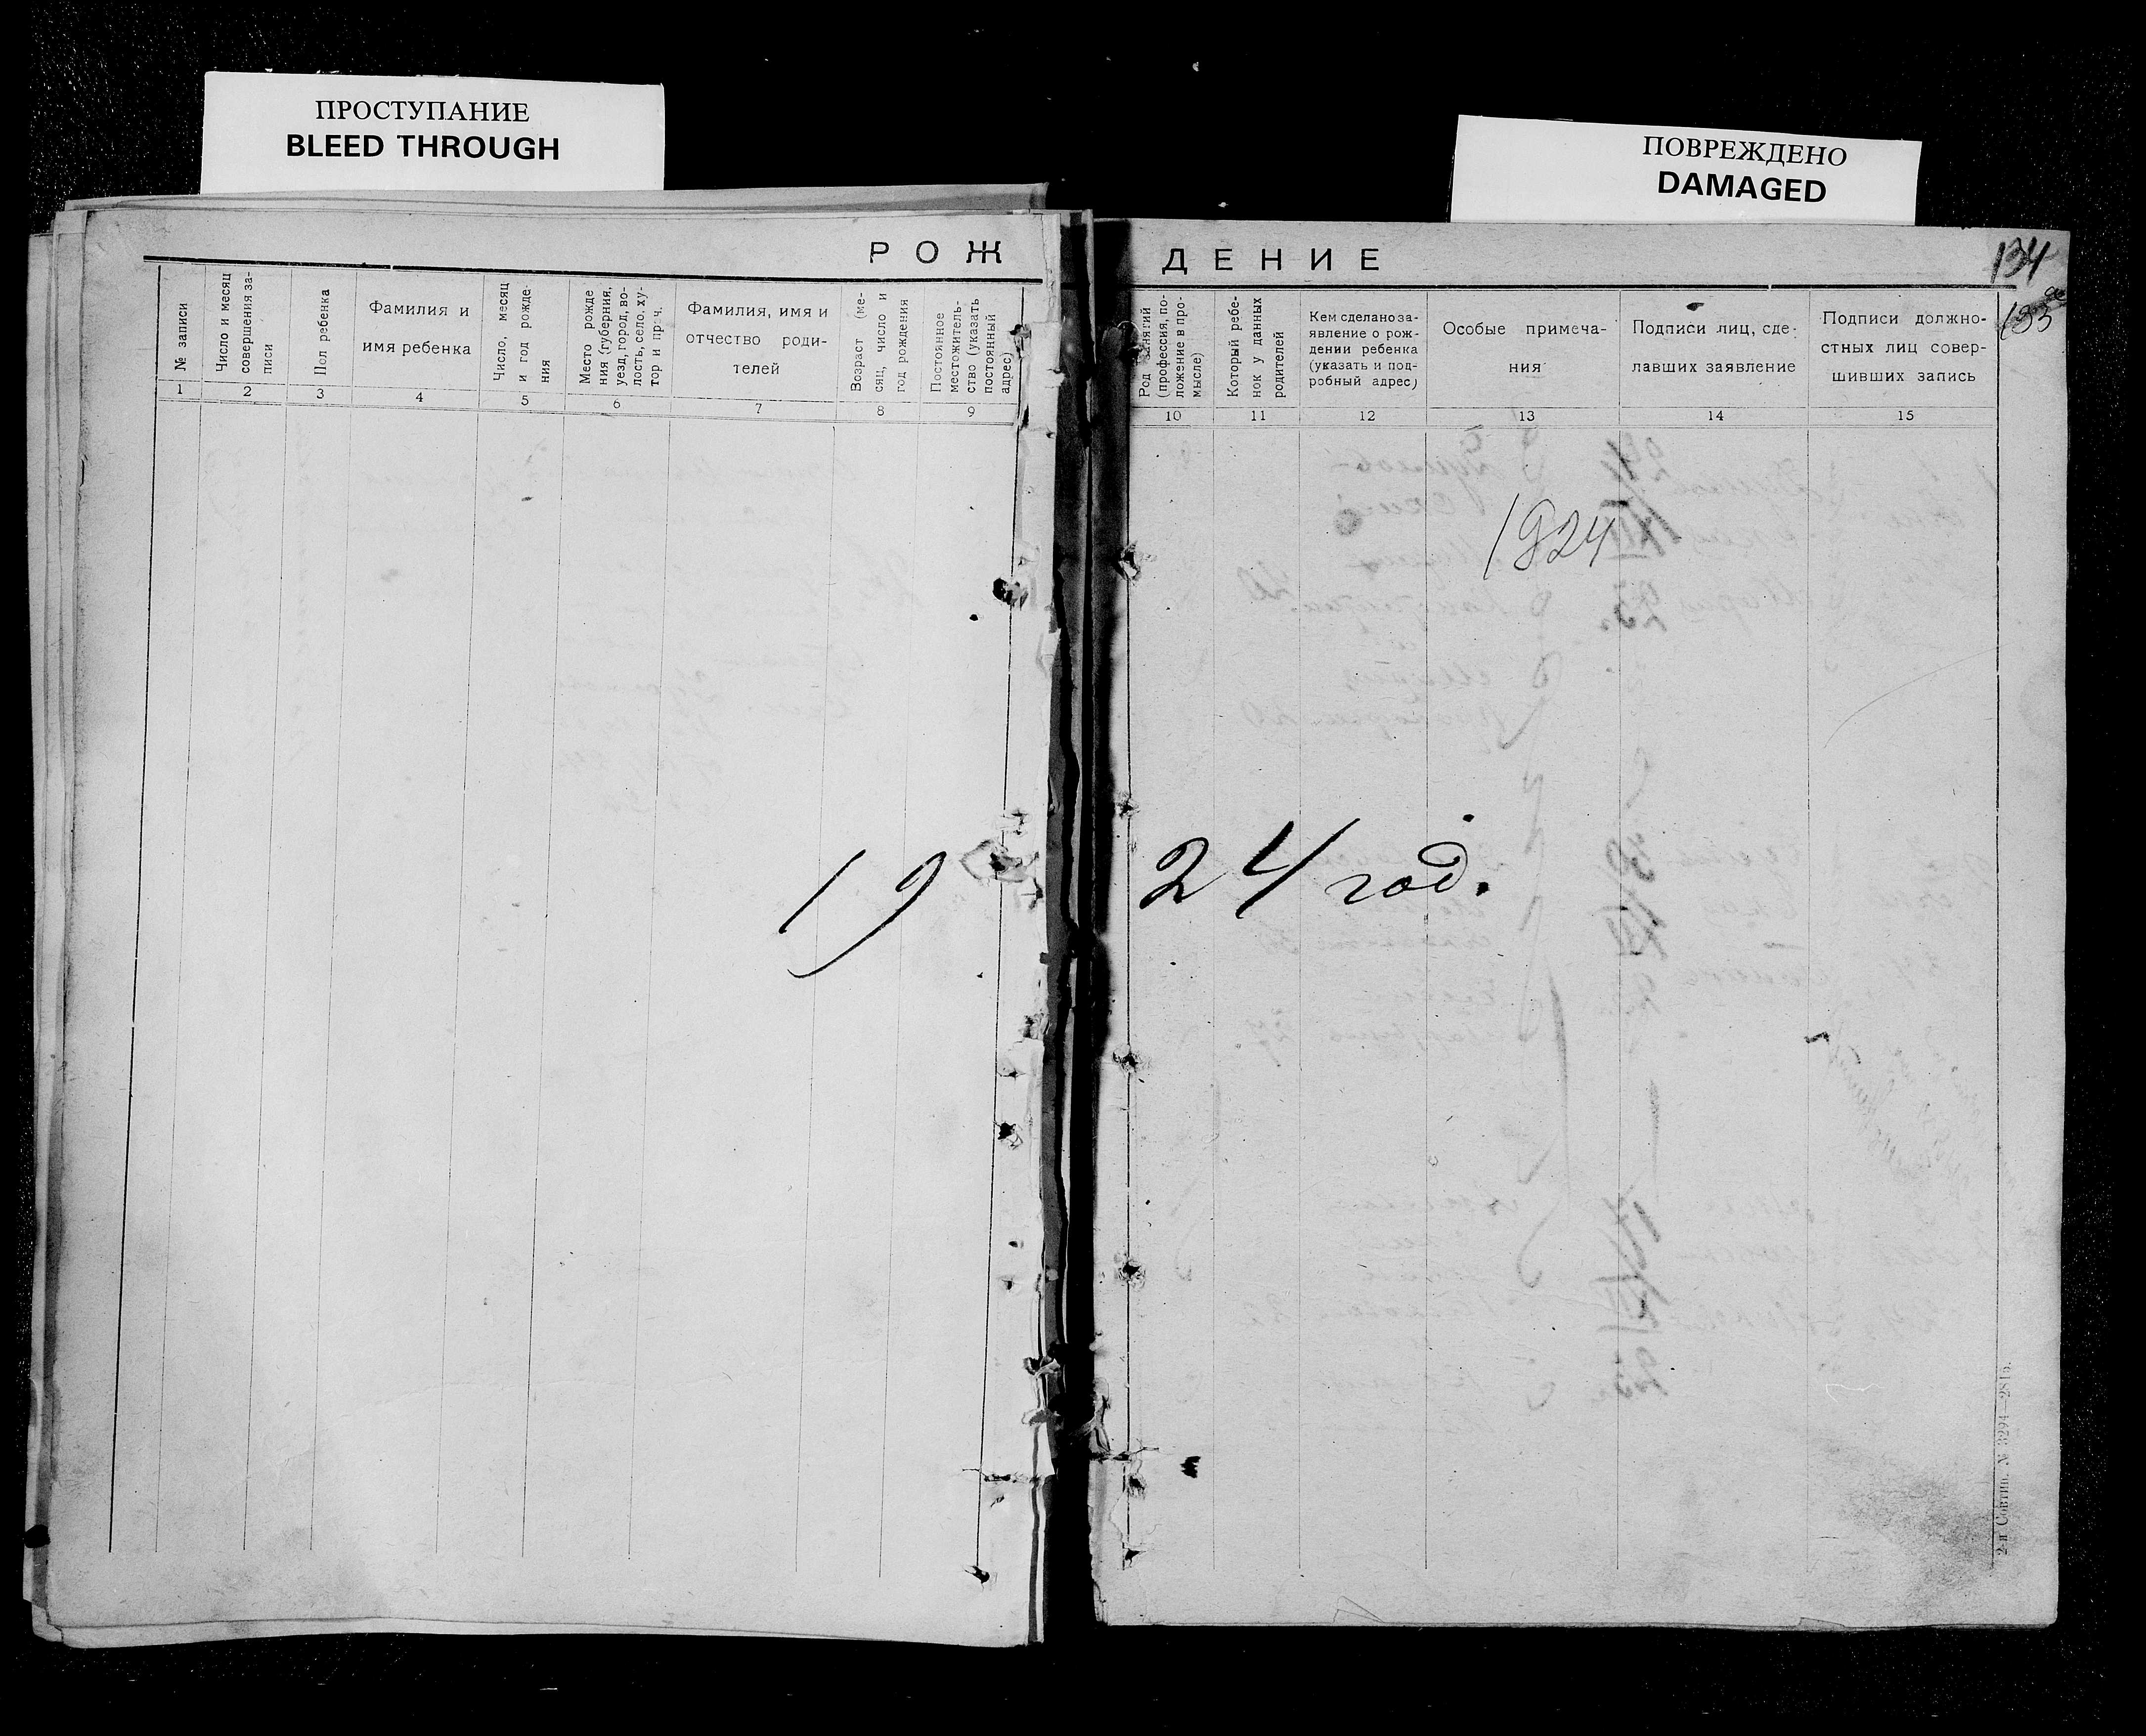 ПРОСТУПАНИЕ
BLEED THROUGH
ПОВРЕЖДЕНО
DAMAGED
РОЖДЕНИЕ
134
133
№ записи
Число и месяц
совершения за-
писи
Пол ребенка
Фамилия и
имя ребенка
Число, месяц
и год рожде-
ния
Место рожде
ния (губерния,
уезд, город, во-
лость, село, ху-
тор и проч.
Фамилия, имя и
отчество роди-
телей
Возраст (ме-
сяц, число и
год рождения
Постоянное
местожитель-
ство (указать
постоянный
адрес)
Род занятий
(профессия, по-
ложение в про-
мысле)
Который ребе-
нок у данных
родителей
Кем сделано за-
явление о рож-
дении ребенка
(указать и под-
робный адрес)
Особые примеча-
ния
Подписи лиц, сде-
лавших заявление
Подписи должно-
стных лиц совер-
шивших запись
1 2 3 4 5 6 7 8 9 10 11 12 13 14 15
1924
1924 год.
2-я Совтип. № 3294—2815.